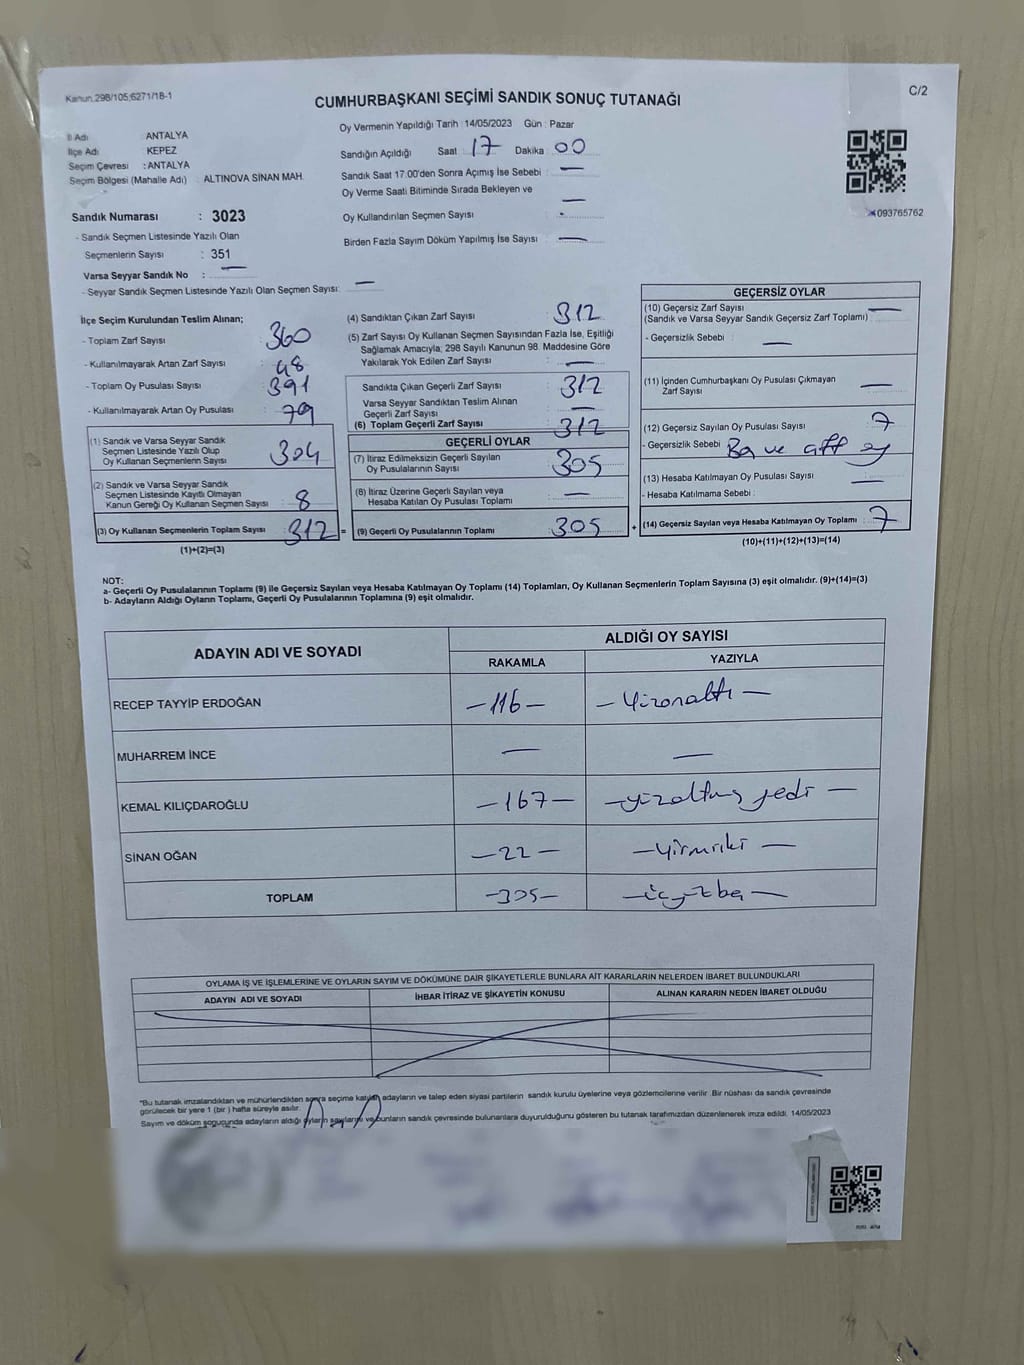 Kanun.298/105;6271/18-1
C/2
CUMHURBAŞKANI SEÇİMİ SANDIK SONUÇ TUTANAĞI
İl Adı ANTALYA
İlçe Adı KEPEZ
Seçim Çevresi : ANTALYA
Seçim Bölgesi (Mahalle Adı) : ALTINOVA SİNAN MAH.
Sandık Numarası : 3023
- Sandık Seçmen Listesinde Yazılı Olan
Seçmenlerin Sayısı : 351
Varsa Seyyar Sandık No : —
- Seyyar Sandık Seçmen Listesinde Yazılı Olan Seçmen Sayısı: —
Oy Vermenin Yapıldığı Tarih : 14/05/2023 Gün : Pazar
Sandığın Açıldığı Saat 17 Dakika 00
Sandık Saat 17:00'den Sonra Açımış İse Sebebi : —
Oy Verme Saati Bitiminde Sırada Bekleyen ve
Oy Kullandırılan Seçmen Sayısı : —
Birden Fazla Sayım Döküm Yapılmış İse Sayısı : —
093765762
İlçe Seçim Kurulundan Teslim Alınan;
- Toplam Zarf Sayısı : 360
- Kullanılmayarak Artan Zarf Sayısı : 48
- Toplam Oy Pusulası Sayısı : 391
- Kullanılmayarak Artan Oy Pusulası : 79
(1) Sandık ve Varsa Seyyar Sandık
Seçmen Listesinde Yazılı Olup
Oy Kullanan Seçmenlerin Sayısı : 304
(2) Sandık ve Varsa Seyyar Sandık
Seçmen Listesinde Kayıtlı Olmayan
Kanun Gereği Oy Kullanan Seçmen Sayısı : 8
(3) Oy Kullanan Seçmenlerin Toplam Sayısı : 312 =
(1)+(2)=(3)
(4) Sandıktan Çıkan Zarf Sayısı : 312
(5) Zarf Sayısı Oy Kullanan Seçmen Sayısından Fazla İse, Eşitliği
Sağlamak Amacıyla, 298 Sayılı Kanunun 98. Maddesine Göre
Yakılarak Yok Edilen Zarf Sayısı : —
Sandıkta Çıkan Geçerli Zarf Sayısı : 312
Varsa Seyyar Sandıktan Teslim Alınan
Geçerli Zarf Sayısı : —
(6) Toplam Geçerli Zarf Sayısı : 312
GEÇERLİ OYLAR
(7) İtiraz Edilmeksizin Geçerli Sayılan
Oy Pusulalarının Sayısı : 305
(8) İtiraz Üzerine Geçerli Sayılan veya
Hesaba Katılan Oy Pusulası Toplamı : —
(9) Geçerli Oy Pusulalarının Toplamı : 305 +
GEÇERSİZ OYLAR
(10) Geçersiz Zarf Sayısı —
(Sandık ve Varsa Seyyar Sandık Geçersiz Zarf Toplamı) :
- Geçersizlik Sebebi : —
(11) İçinden Cumhurbaşkanı Oy Pusulası Çıkmayan
Zarf Sayısı : —
(12) Geçersiz Sayılan Oy Pusulası Sayısı : 7
- Geçersizlik Sebebi : ve çift oy
(13) Hesaba Katılmayan Oy Pusulası Sayısı : —
- Hesaba Katılmama Sebebi :
(14) Geçersiz Sayılan veya Hesaba Katılmayan Oy Toplamı : 7
(10)+(11)+(12)+(13)=(14)
NOT:
a- Geçerli Oy Pusulalarının Toplamı (9) ile Geçersiz Sayılan veya Hesaba Katılmayan Oy Toplamı (14) Toplamları, Oy Kullanan Seçmenlerin Toplam Sayısına (3) eşit olmalıdır. (9)+(14)=(3)
b- Adayların Aldığı Oyların Toplamı, Geçerli Oy Pusulalarının Toplamına (9) eşit olmalıdır.
ADAYIN ADI VE SOYADI ALDIĞI OY SAYISI
RAKAMLA YAZIYLA
RECEP TAYYİP ERDOĞAN —116— —Yüzonaltı—
MUHARREM İNCE — —
KEMAL KILIÇDAROĞLU —167— —yüzaltmış yedi—
SİNAN OĞAN —22— —Yirmiiki—
TOPLAM —305— —üçyüzbeş—
OYLAMA İŞ VE İŞLEMLERİNE VE OYLARIN SAYIM VE DÖKÜMÜNE DAİR ŞİKAYETLERLE BUNLARA AİT KARARLARIN NELERDEN İBARET BULUNDUKLARI
ADAYIN ADI VE SOYADI İHBAR İTİRAZ VE ŞİKAYETİN KONUSU ALINAN KARARIN NEDEN İBARET OLDUĞU
*Bu tutanak imzalandıktan ve mühürlendikten sonra seçime katılan adayların ve talep eden siyasi partilerin sandık kurulu üyelerine veya gözlemcilerine verilir. Bir nüshası da sandık çevresinde
görülecek bir yere 1 (bir) hafta süreyle asılır.
Sayım ve döküm sonucunda adayların aldığı oyların sayılarını ve bunların sandık çevresinde bulunanlara duyurulduğunu gösteren bu tutanak tarafımızdan düzenlenerek imza edildi. 14/05/2023